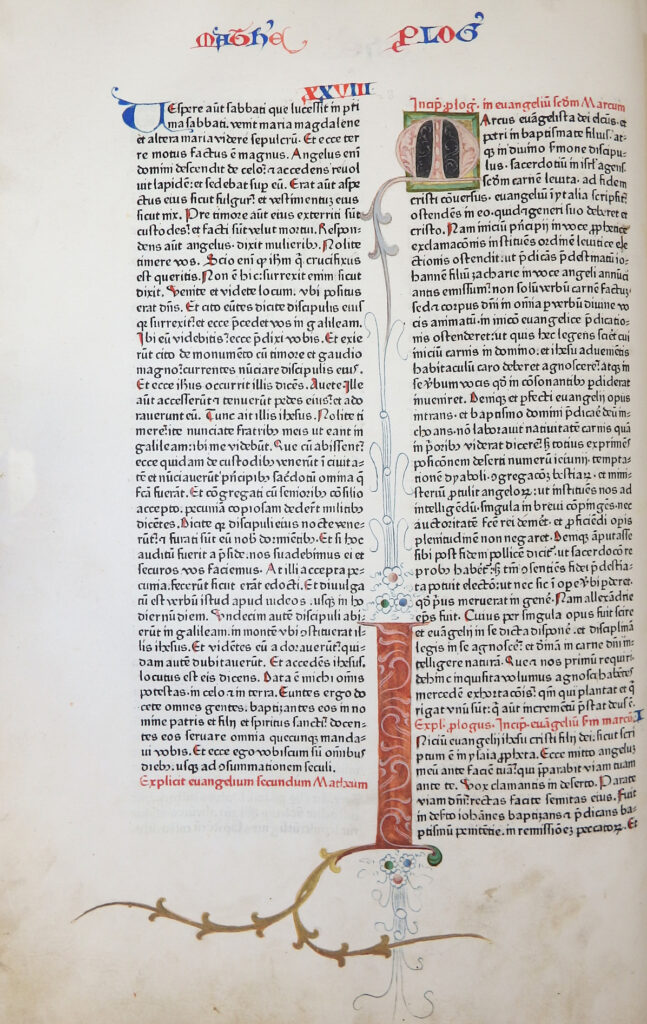 Mathe Plog'
XXVIII
VEspere aūt sabbati que lucessit in pri
ma sabbati. venit maria magdalene
et altera maria videre sepulcrū. Et ecce ter
re motus factus ē magnus. Angelus enī
domini descendit de celo: ⁊ accedens revol
uit lapidē: et sedebat sup eū. Erat aūt aspe
ctus eius sicut fulgur: et vestimentū eius
sicut nix. Pre timore aūt eius exterriti sūt
custodes: et facti sūt velut mortui. Respon
dens aūt angelus. dixit mulieribꝫ. Nolite
timere vos. Scio enī ꝙ ihm̄ q̄ crucifixus
est queritis. Non ē hic: surrexit enim sicut
dixit. Venite et videte locum. vbi positus
erat dn̄s. Et cito eūtes dicite discipulis eius
ꝙ surrexit: et ecce p̄cedet vos in galileam.
Ibi eū videbitis: ecce p̄dixi vobis. Et exie
rūt cito de monumēto cū timore et gaudio
magno: currentes nūciare discipulis eius.
Et ecce ih̄us occurrit illis dicēs. Avete. Ille
aūt accesserūt ⁊ tenuerūt pedes eius: et ado
rauerunt eū. Tunc ait illis ihesus. Nolite ti
mere: ite nunciate fratribꝫ meis ut eant in
galileam: ibi me videbūt. Que cū abissent:
ecce quidam de custodibꝫ venerūt ī ciuita-
tē et nūciauerūt p̄ncipibꝫ sac̄dotū omīa q̄
fc̄a fuerāt. Et cōgregati cū senioribꝫ cōsilio
accepto. pecuniā copiosam dederūt militibꝫ
dicētes. Dicite ꝙ discipuli eius nocte vene-
rūt: ⁊ furati sūt eū nob̄ dormiētibꝫ. Et si hoc
auditū fuerit a p̄side. nos suadebimus ei et
securos vos faciemus. At illi accepta pe-
cunia. fecerūt sicut erāt edocti. Et diuulga
tū est verbū istud apud iudeos. usqꝫ in ho
diernū diem. Vndecim autē discipuli abi
erūt in galileam. in montē vbi ꝯstituerat il-
lis ihesus. Et vidētes eū adorauerūt: qui-
dam autē dubitauerūt. Et accedēs ihesus.
locutus est eis dicens. Data ē michi om̄is
potestas. in celo ⁊ in terra. Euntes ergo do
cete omnes gentes. baptizantes eos in no
mine patris et filij et spiritus sancti: Docen-
tes eos seruare omnia quecunqꝫ manda-
ui vobis. Et ecce ego vobiscum sū om̄ibus
diebꝫ. usqꝫ ad ꝯsummationem seculi.
Explicit euangelium secundum Matheum
Incip̄. plog'. in euangeliū scd̄m Marcum
MArcus euāgelista dei elc̄us. et
petri in baptismate filius. at-
qꝫ in diuino s̄mone discipu-
lus. sacerdotiū in isrl̄ agens.
scd̄m carnē leuita. ad fidem
cristi cōuersus. euangeliū ī ytalia scripsit:
ostendēs in eo. quid ⁊ generi suo deberet et
cristo. Nam iniciū p̄ncipij in voce. ꝓphetice
exclamacōis instituēs ordinē leuitice ele
ctionis ostendit: ut p̄dicās p̄destinatū io-
hannē filiū zacharie in voce angeli annūci
antis emissum: non solū verbū carnē factū
sed ⁊ corpus dn̄i in om̄ia ꝑ verbū diuine vo
cis animatū. in inicō euangelice p̄dicatio-
nis ostenderet: ut quis hec legens sciret cui
iniciū carnis in domino. et ihesu adueniētis
habitaculū caro deberet agnoscere: atqꝫ in
se v̄bum vocis qd̄ in cōsonantibꝫ ꝑdiderat
inueniret. Deniqꝫ et ꝑfecti euangelij opus
intrans. et baptismo domini p̄dicare deū in-
choans. nō laborauit natiuitatē carnis quā
in p̄oribꝫ viderat dicere: sꝫ totius exprimēs
posiconē deserti numerū ieiunij. tempta-
tionē dyaboli. ⁊gregacōꝫ bestiaꝝ. et mini-
steriū ꝓtulit angeloꝝ: ut instituēs nos ad
intelligēdū. singula in brevi cōpingēs. nec
auctoritatē fc̄e rei demēt. et ꝑficiendi op̄is
plenitudinē non negaret. Deniqꝫ āputasse
sibi post fidem pollicē dicit'. ut sacerdocō re
probꝰ habēt': sꝫ tm̄ ꝯsentiēs fidei p̄destia-
ta potuit electō: ut nec sic ī oꝑe v̄bi ꝑderet.
qd̄ p̄us meruerat in genē. Nam allexādrie
ep̄s fuit. Cuius per singula opus fuit scire
et euāgelij in se dicta disponē. et disciplinā
legis in se agnoscē: et diuinā in carne dn̄i in-
telligere naturā. Que ⁊ nos primū requiri.
dehinc inquisita volumus agnosci: habētes
mercedē exhortacōis: qm̄ qui plantat et q̄
rigat vnū sūt: q̄ aūt incremētū p̄stat deus ē.
Expl. ꝓlogus. Incip̄. euāgeliū s̄m marcū
INiciū euangelij ihesu cristi filij dei. sicut scri
ptum ē in ysaia ꝓpheta. Ecce mitto angelum
meū ante faciē tuā: qui p̄parabit viam tuam
ante te. Vox clamantis in deserto. Parate
viam dn̄i: rectas facite semitas eius. Fuit
in deserto iohānes baptizans ⁊ p̄dicans ba-
ptismū penitētie. in remissioēꝫ peccatoꝝ. Et